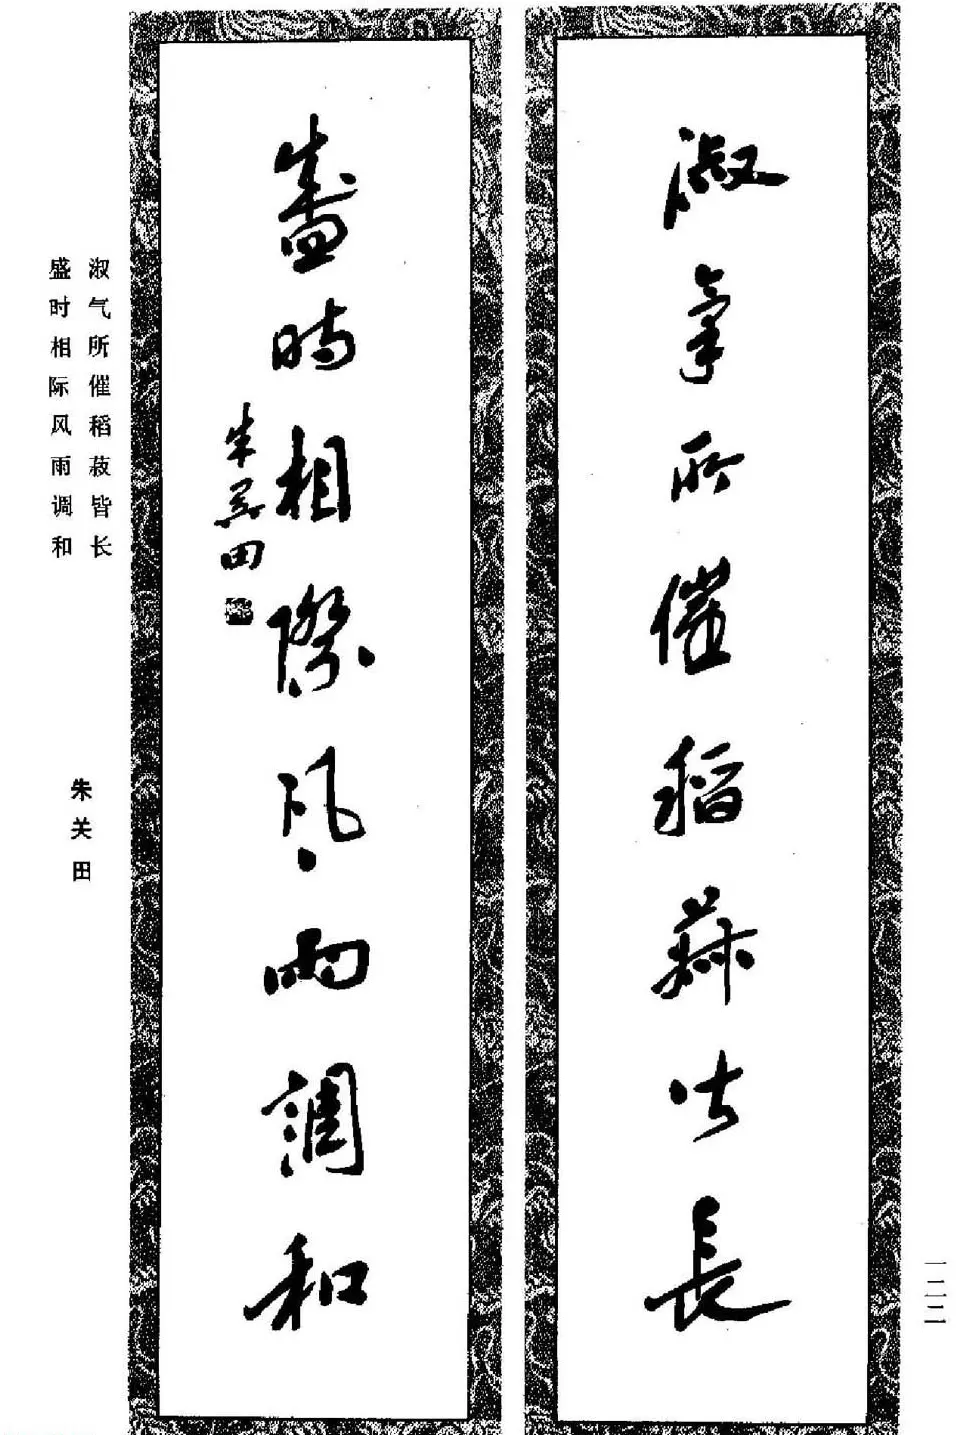 淑氣所催稻菽皆長
盛時相際風雨調和
朱関田
淑气所催稻菽皆长
盛时相际风雨调和
朱关田
一二二